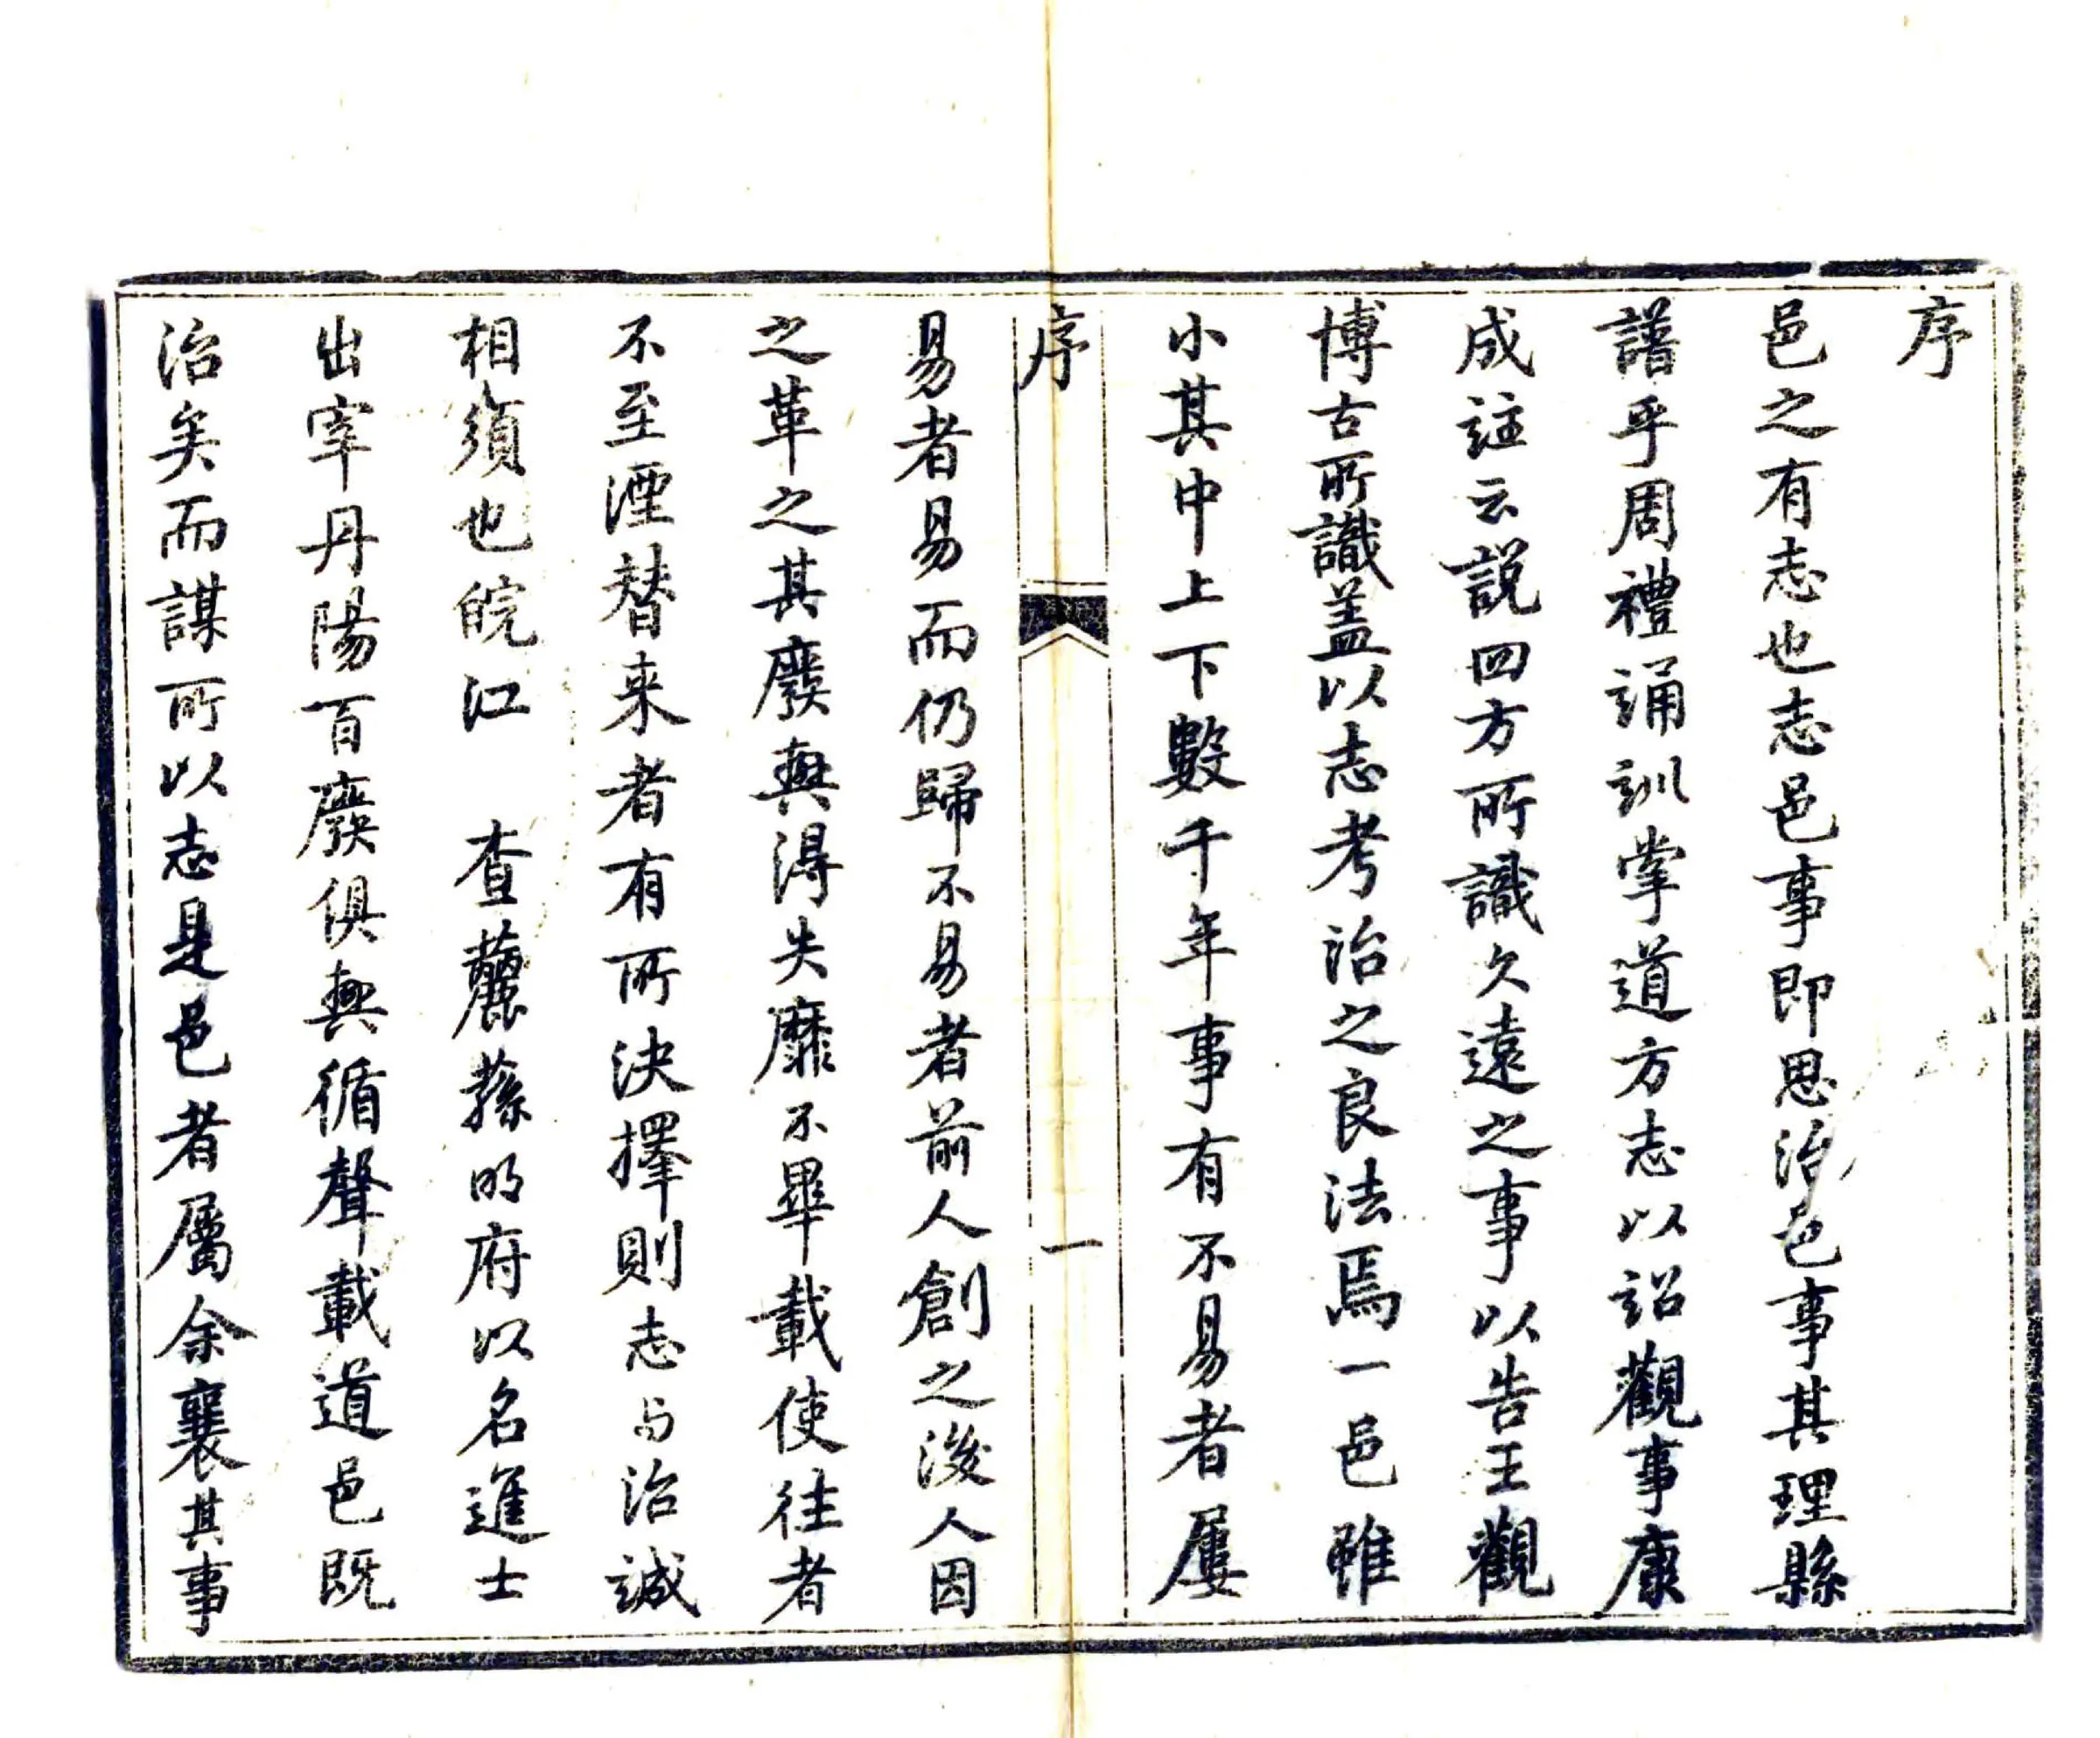 序
邑之有志也志邑事即思治邑事其理縣
譜乎周禮誦訓掌道方志以詔觀事康
成註云説四方所識久遠之事以告王觀
博古所識盖以志考治之良法焉一邑雖
小其中上下數千年事有不易者屢
序
一
易者易而仍歸不易者前人創之後人因
之革之其廢興得失靡不畢載使往者
不至湮替来者有所決擇則志与治誠
相須也皖江 查蘪蓀明府以名進士
出宰丹陽百廢俱興循聲載道邑既
治矣而謀所以志是邑者屬余襄其事